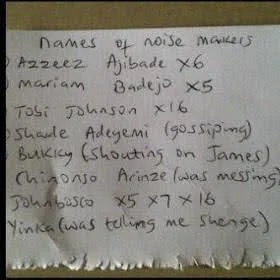 Names of noise makers
Azzeez Ajibade x6
Mariam Badejo x5
Tobi Johnson x16
Shade Adeyemi (gossiping)
Bukky (shouting on James)
Chinonso Arinze (was messing)
Johnbosco x5 x7 x16
Yinka (was telling me shenge)